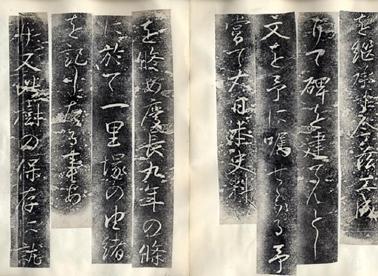 を継
りて碑を建てんとし
文を予に嘱せらる予
嘗て大日本史料
を修め慶長九年の條
に於て一里塚の由緒
を記したる事あ
り又の保存に就